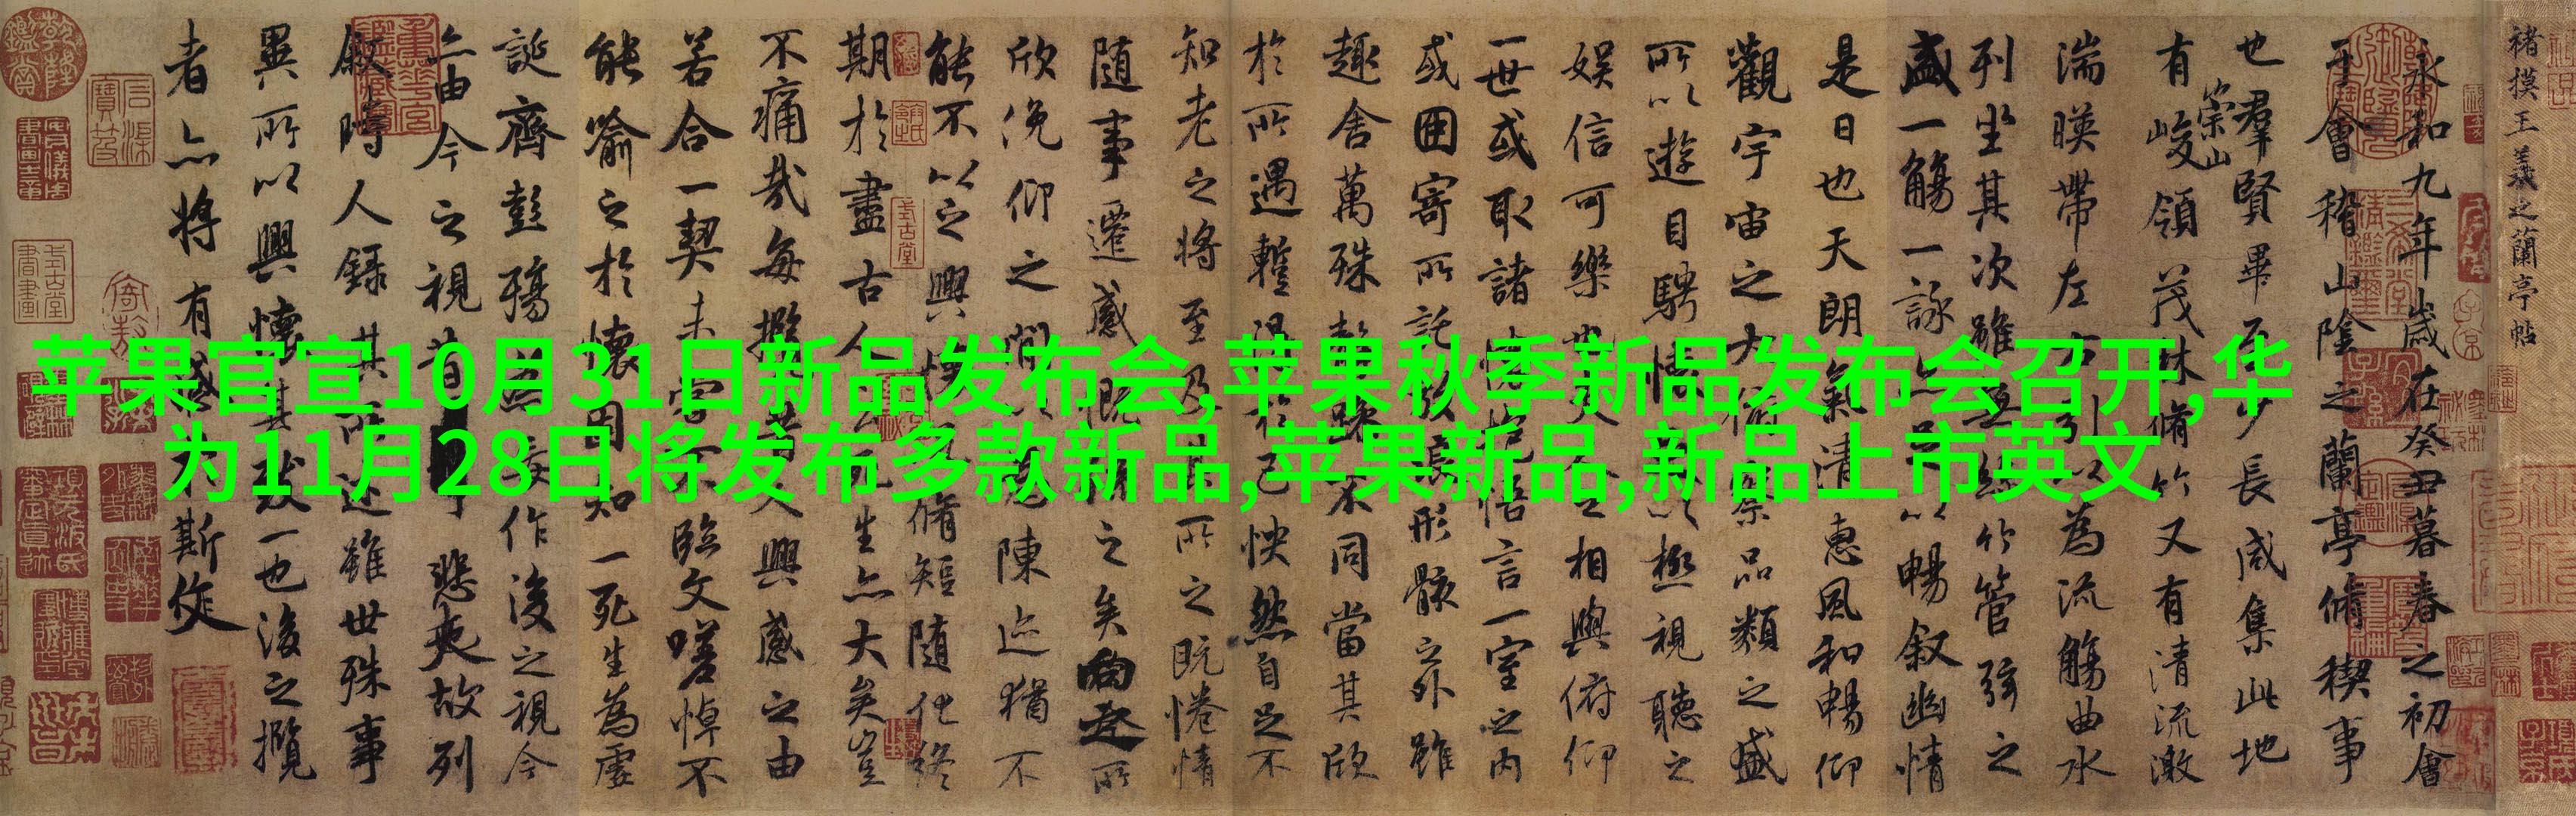 苹果官宣10月31日新品发布会,苹果秋季新品发布会召开,华
为11月28日将发布多款新品,苹果新品,新品上市英文
褚摸王羲之蘭亭帖
永和九年歲在癸丑暮春之初會
于會稽山陰之蘭亭脩稧事
也羣賢畢至少長咸集此地
有崇山峻領茂林脩竹又有清流激
湍暎帶左右引以為流觴曲水
列坐其次雖無絲竹管弦之
盛一觴一詠以暢叙幽情
是日也天朗氣清惠風和暢仰
觀宇宙之大俯察品類之盛
所以遊目騁懷以極視聽之
娛信可樂也夫人之相與俯仰
一世或取諸懷抱悟言一室之內
或因寄所託放浪形骸之外雖
趣舍萬殊靜躁不同當其欣
於所遇暫得於己怏然自足不
知老之將至及其所之既惓情
隨事遷感慨之矣向之所
欣俛仰之間以為陳迹猶不
能不以之興懷脩短隨化終
期於盡古人云生亦大矣豈
不痛哉每攬昔人興感之由
若合一契未嘗不臨文嗟悼不
能喻之於懷固知一死生為虛
誕齊彭殤為妄作後之視今
亦由今之視昔悲夫故列
叙時人錄其所述雖世殊事
異所以興懷其致一也後之攬
者亦將有感於斯文